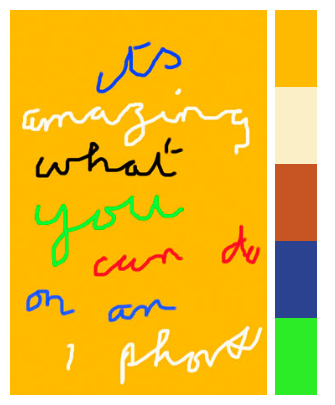 its
amazing
what
you
can do
on an
i phone